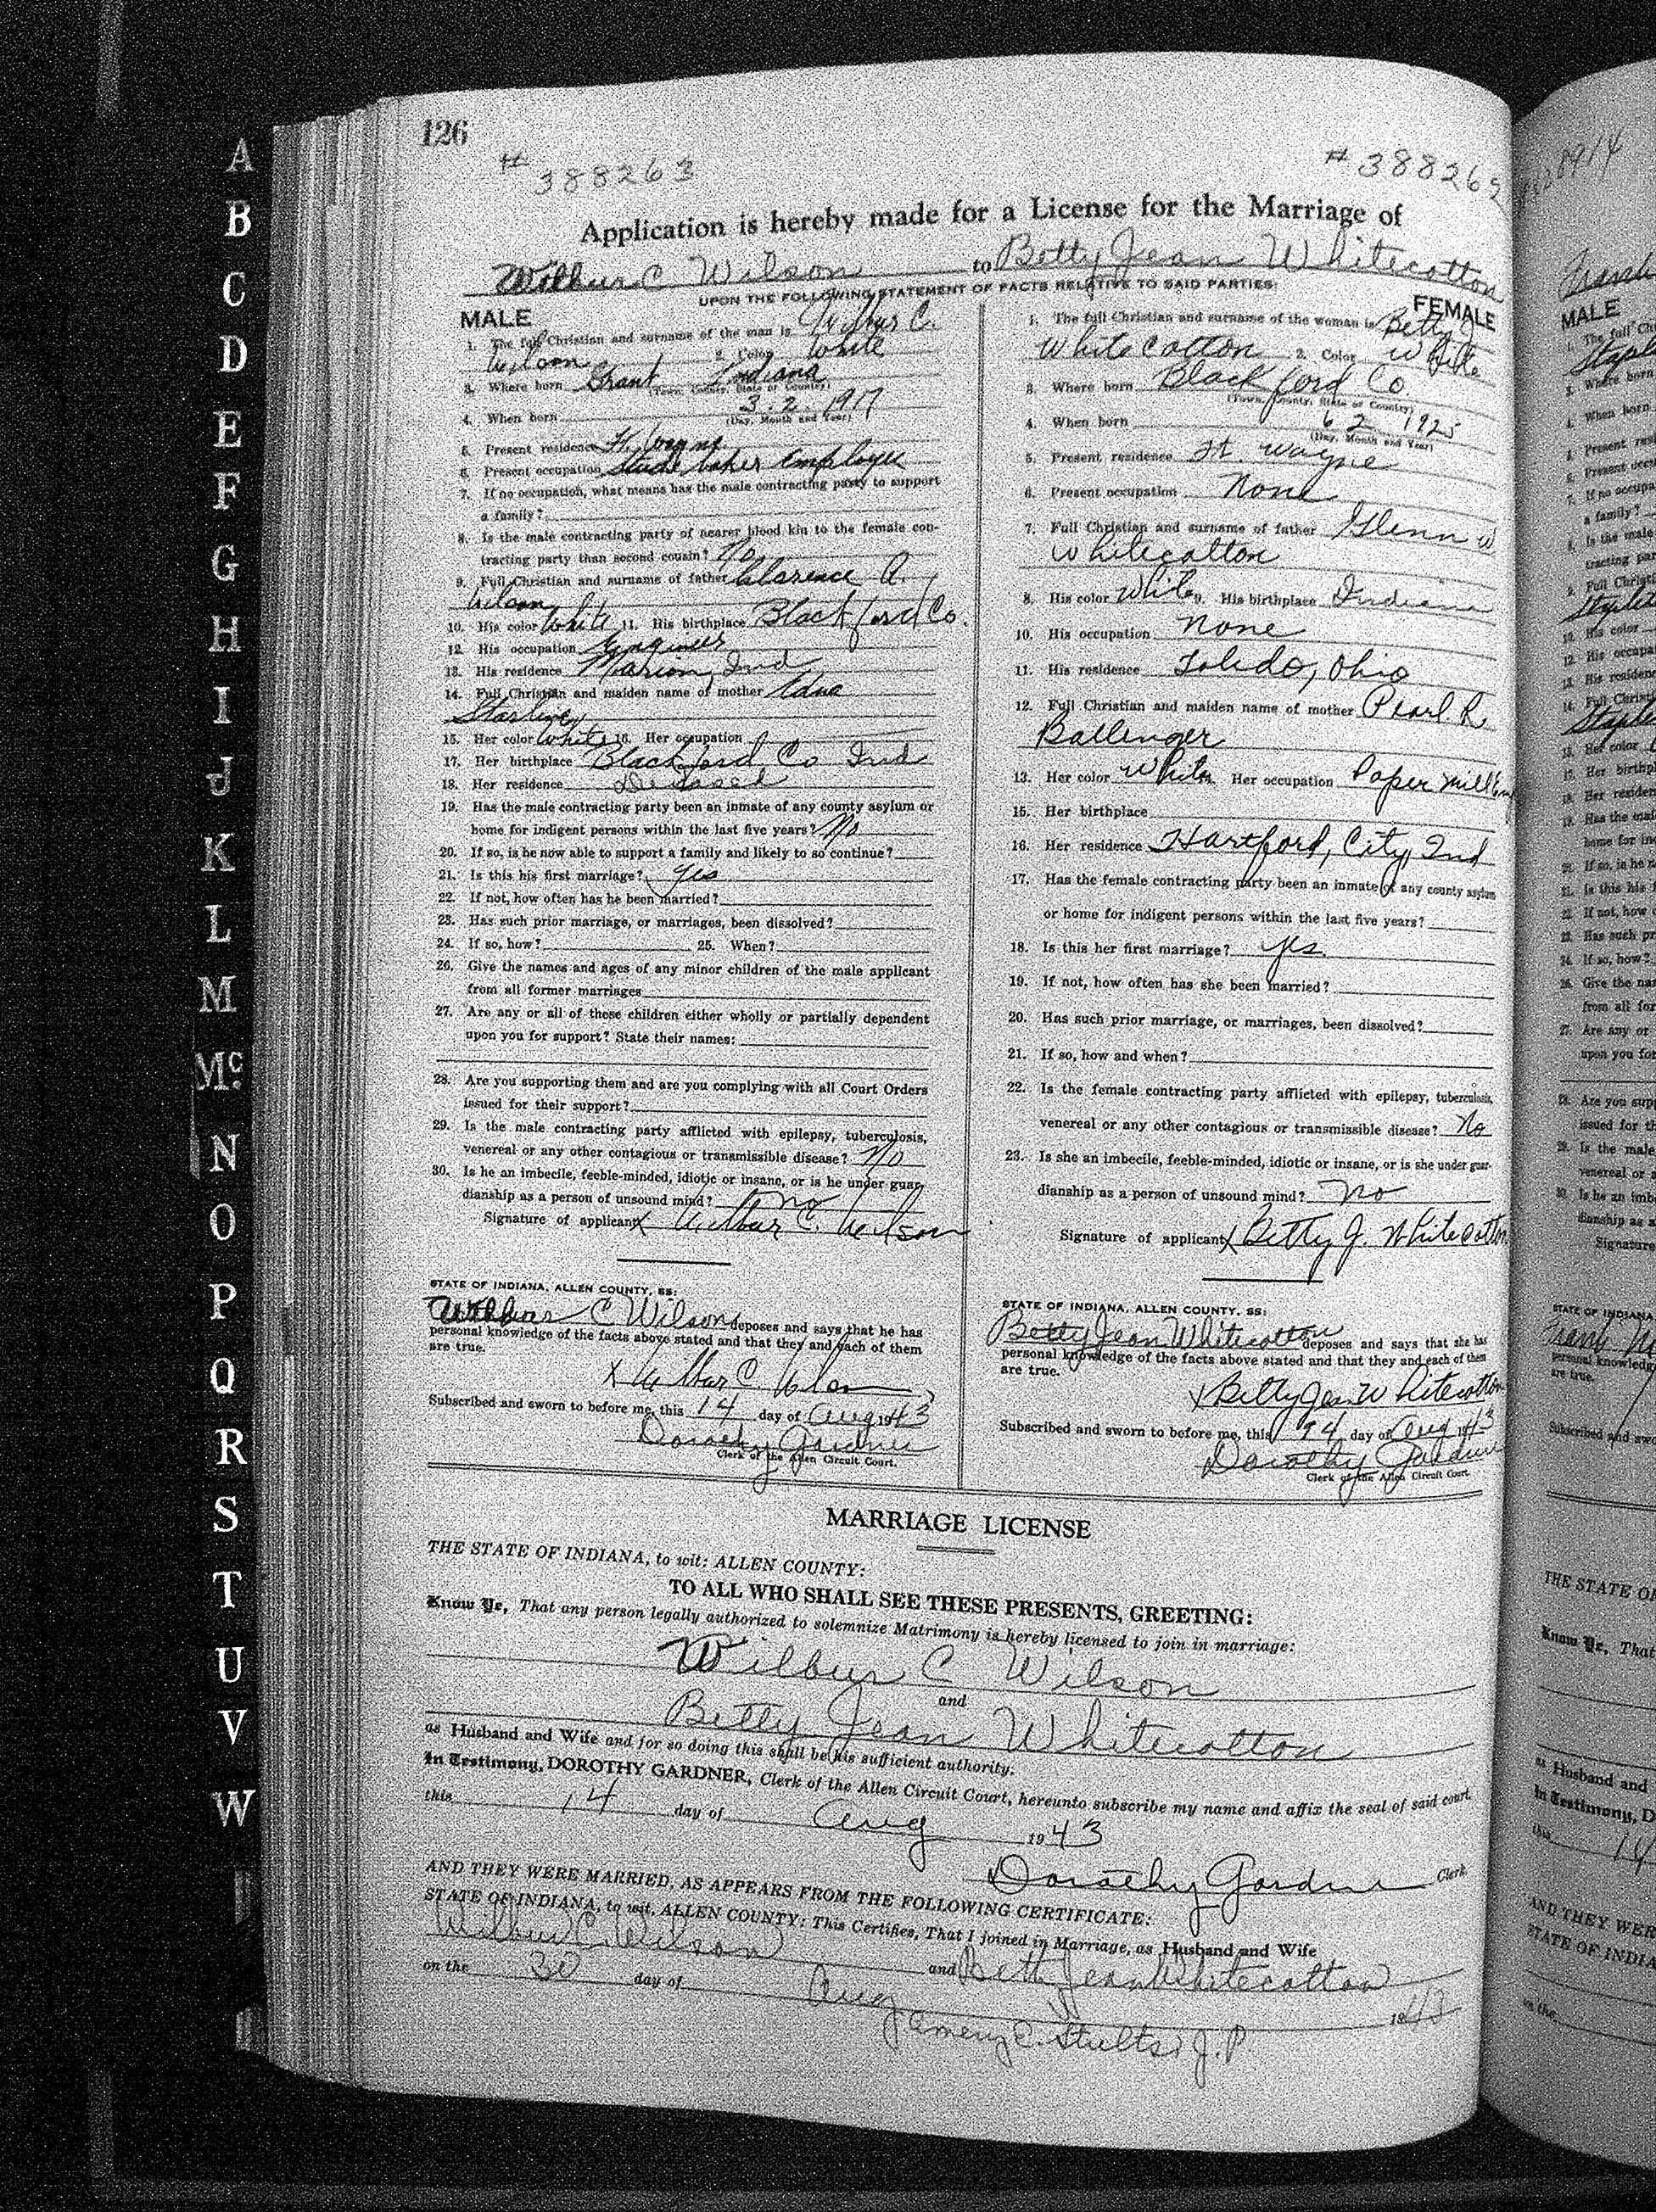 126
# 388263
# 388265
Application is hereby made for a License for the Marriage of
Wilbur C Wilson to Betty Jean Whitecotton
UPON THE FOLLOWING STATEMENT OF FACTS RELATIVE TO SAID PARTIES:
MALE
1. The full Christian and surname of the man is Wilbur C.
Wilson 2. Color White
3. Where born Grant Indiana
(Town, County, State or Country)
4. When born 3-2-1917
(Day, Month and Year)
5. Present residence Ft. Wayne
6. Present occupation Studebaker Employee
7. If no occupation, what means has the male contracting party to support
a family?
8. Is the male contracting party of nearer blood kin to the female con-
tracting party than second cousin? No
9. Full Christian and surname of father Clarence A.
Wilson
10. His color White 11. His birthplace Blackford Co.
12. His occupation Engineer
13. His residence Marion, Ind
14. Full Christian and maiden name of mother Edna
Starling
15. Her color White 16. Her occupation
17. Her birthplace Blackford Co Ind
18. Her residence Deceased
19. Has the male contracting party been an inmate of any county asylum or
home for indigent persons within the last five years? No
20. If so, is he now able to support a family and likely to so continue?
21. Is this his first marriage? Yes
22. If not, how often has he been married?
23. Has such prior marriage, or marriages, been dissolved?
24. If so, how? 25. When?
26. Give the names and ages of any minor children of the male applicant
from all former marriages
27. Are any or all of these children either wholly or partially dependent
upon you for support? State their names:
28. Are you supporting them and are you complying with all Court Orders
issued for their support?
29. Is the male contracting party afflicted with epilepsy, tuberculosis,
venereal or any other contagious or transmissible disease? No
30. Is he an imbecile, feeble-minded, idiotic or insane, or is he under guar-
dianship as a person of unsound mind? no
Signature of applicant X Wilbur C. Wilson
STATE OF INDIANA, ALLEN COUNTY, SS:
Wilbur C Wilson deposes and says that he has
personal knowledge of the facts above stated and that they and each of them
are true.
X Wilbur C. Wilson
Subscribed and sworn to before me, this 14 day of Aug 1943
Dorothy Gardner
Clerk of the Allen Circuit Court.
FEMALE
1. The full Christian and surname of the woman is Betty J.
Whitecotton 2. Color White
3. Where born Blackford Co
(Town, County, State or Country)
4. When born 6 2 1925
(Day, Month and Year)
5. Present residence Ft. Wayne
6. Present occupation None
7. Full Christian and surname of father Glenn W
Whitecotton
8. His color White 9. His birthplace Indiana
10. His occupation None
11. His residence Toledo, Ohio
12. Full Christian and maiden name of mother Pearl R.
Ballenger
13. Her color White Her occupation Paper mill Em
15. Her birthplace
16. Her residence Hartford, City, Ind
17. Has the female contracting party been an inmate of any county asylum
or home for indigent persons within the last five years?
18. Is this her first marriage? yes.
19. If not, how often has she been married?
20. Has such prior marriage, or marriages, been dissolved?
21. If so, how and when?
22. Is the female contracting party afflicted with epilepsy, tuberculosis,
venereal or any other contagious or transmissible disease? No
23. Is she an imbecile, feeble-minded, idiotic or insane, or is she under guar-
dianship as a person of unsound mind? No
Signature of applicant X Betty J. Whitecotton
STATE OF INDIANA, ALLEN COUNTY, SS:
Betty Jean Whitecotton deposes and says that she has
personal knowledge of the facts above stated and that they and each of them
are true.
X Betty Jean Whitecotton
Subscribed and sworn to before me, this 14 day of Aug 1943
Dorothy Gardner
Clerk of the Allen Circuit Court.
MARRIAGE LICENSE
THE STATE OF INDIANA, to wit: ALLEN COUNTY:
TO ALL WHO SHALL SEE THESE PRESENTS, GREETING:
Know Ye, That any person legally authorized to solemnize Matrimony is hereby licensed to join in marriage:
Wilbur C Wilson
and
Betty Jean Whitecotton
as Husband and Wife and for so doing this shall be his sufficient authority.
In Testimony, DOROTHY GARDNER, Clerk of the Allen Circuit Court, hereunto subscribe my name and affix the seal of said court,
this 14 day of Aug 1943
Dorothy Gardner Clerk
AND THEY WERE MARRIED, AS APPEARS FROM THE FOLLOWING CERTIFICATE:
STATE OF INDIANA, to wit, ALLEN COUNTY: This Certifies, That I joined in Marriage, as Husband and Wife
Wilbur C. Wilson and Betty Jean Whitecotton
on the 30 day of Aug 1943
Emery C. Stults, J.P.
A
B
C
D
E
F
G
H
I
J
K
L
M
Mc
N
O
P
Q
R
S
T
U
V
W
MALE